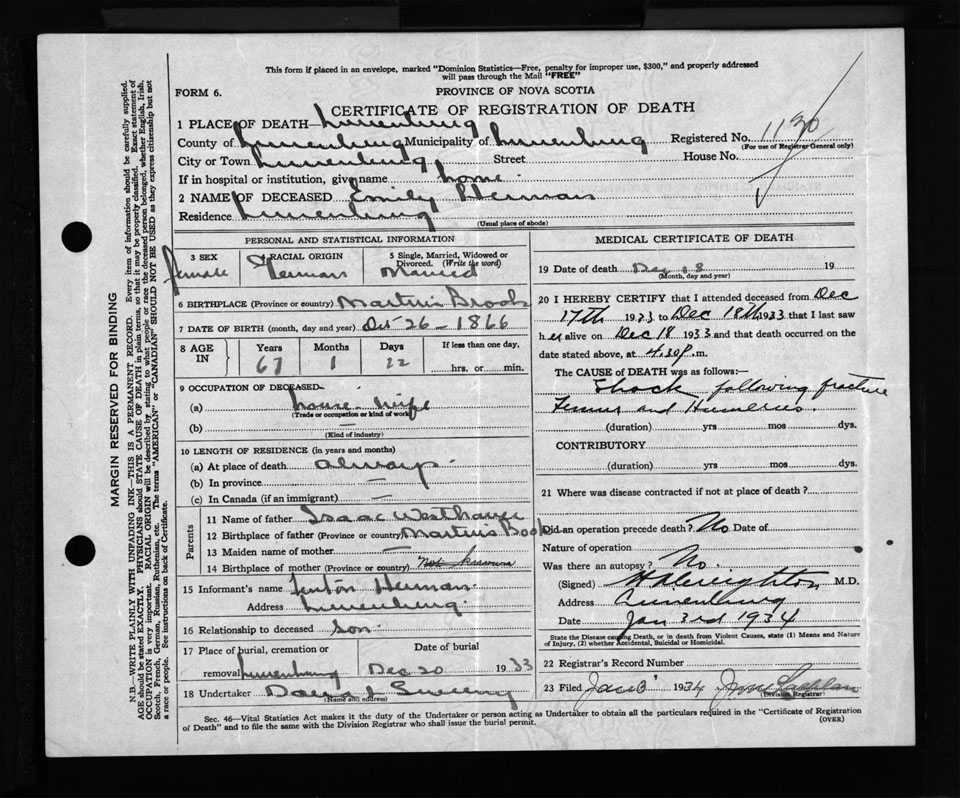 This form if placed in an envelope, marked "Dominion Statistics—Free, penalty for improper use, $300," and properly addressed
will pass through the Mail "FREE"
FORM 6.
PROVINCE OF NOVA SCOTIA
CERTIFICATE OF REGISTRATION OF DEATH
1 PLACE OF DEATH— Lunenburg
County of Lunenburg Municipality of Lunenburg Registered No. 1130
(For use of Registrar General only)
City or Town Lunenburg, Street House No.
If in hospital or institution, give name home
2 NAME OF DECEASED Emily Herman
Residence Lunenburg
(Usual place of abode)
PERSONAL AND STATISTICAL INFORMATION
3 SEX 4 RACIAL ORIGIN 5 Single, Married, Widowed or
Divorced. (Write the word)
female German Married
6 BIRTHPLACE (Province or country) Martin's Brook
7 DATE OF BIRTH (month, day and year) Oct 26 - 1866
8 AGE IN Years Months Days If less than one day,
67 1 22 hrs. or min.
9 OCCUPATION OF DECEASED
(a) house-wife
(Trade or occupation or kind of work)
(b) —
(Kind of industry)
10 LENGTH OF RESIDENCE (in years and months)
(a) At place of death always
(b) In province —
(c) In Canada (if an immigrant) —
Parents
11 Name of father Isaac Westhaver
12 Birthplace of father (Province or country) Martin's Brook
13 Maiden name of mother —
14 Birthplace of mother (Province or country) Not known
15 Informant's name Fenton Herman
Address Lunenburg
16 Relationship to deceased son
17 Place of burial, cremation or Date of burial
removal Lunenburg Dec 20 1933
18 Undertaker
(Name and address)
MEDICAL CERTIFICATE OF DEATH
19 Date of death Dec 18 19
(Month, day and year)
20 I HEREBY CERTIFY that I attended deceased from Dec
17th 1933 to Dec 18th 1933 that I last saw
her alive on Dec 18 1933 and that death occurred on
date stated above, at 4.30 P. m.
The CAUSE of DEATH was as follows:—
Shock following fracture
Femur and Humerus.
(duration) yrs mos dys.
CONTRIBUTORY
(duration) yrs mos dys.
21 Where was disease contracted if not at place of death?
Did an operation precede death? No Date of
Nature of operation
Was there an autopsy? No.
(Signed) Creighton M.D.
Address Lunenburg
Date Jan 3rd 1934
State the Disease causing Death, or in death from Violent Causes, state (1) Means and Nature
of Injury, (2) whether Accidental, Suicidal or Homicidal.
22 Registrar's Record Number
23 Filed Jan 3 1934
(Division Registrar)
Sec. 46—Vital Statistics Act makes it the duty of the Undertaker or person acting as Undertaker to obtain all the particulars required in the "Certificate of Registration
of Death" and to file the same with the Division Registrar who shall issue the burial permit. (OVER)
MARGIN RESERVED FOR BINDING
N.B.—WRITE PLAINLY WITH UNFADING INK—THIS IS A PERMANENT RECORD. Every item of information should be carefully supplied.
AGE should be stated EXACTLY. PHYSICIANS should STATE CAUSE OF DEATH in plain terms, so that it may be properly classified. Exact statement of
OCCUPATION is very important. RACIAL ORIGIN will be described by stating to what people or race the deceased person belonged, whether English, Irish,
Scotch, French, German, Russian, Ruthenian, etc. The terms "AMERICAN" or "CANADIAN" SHOULD NOT BE USED as they express citizenship but not
a race or people. See instructions on back of Certificate.